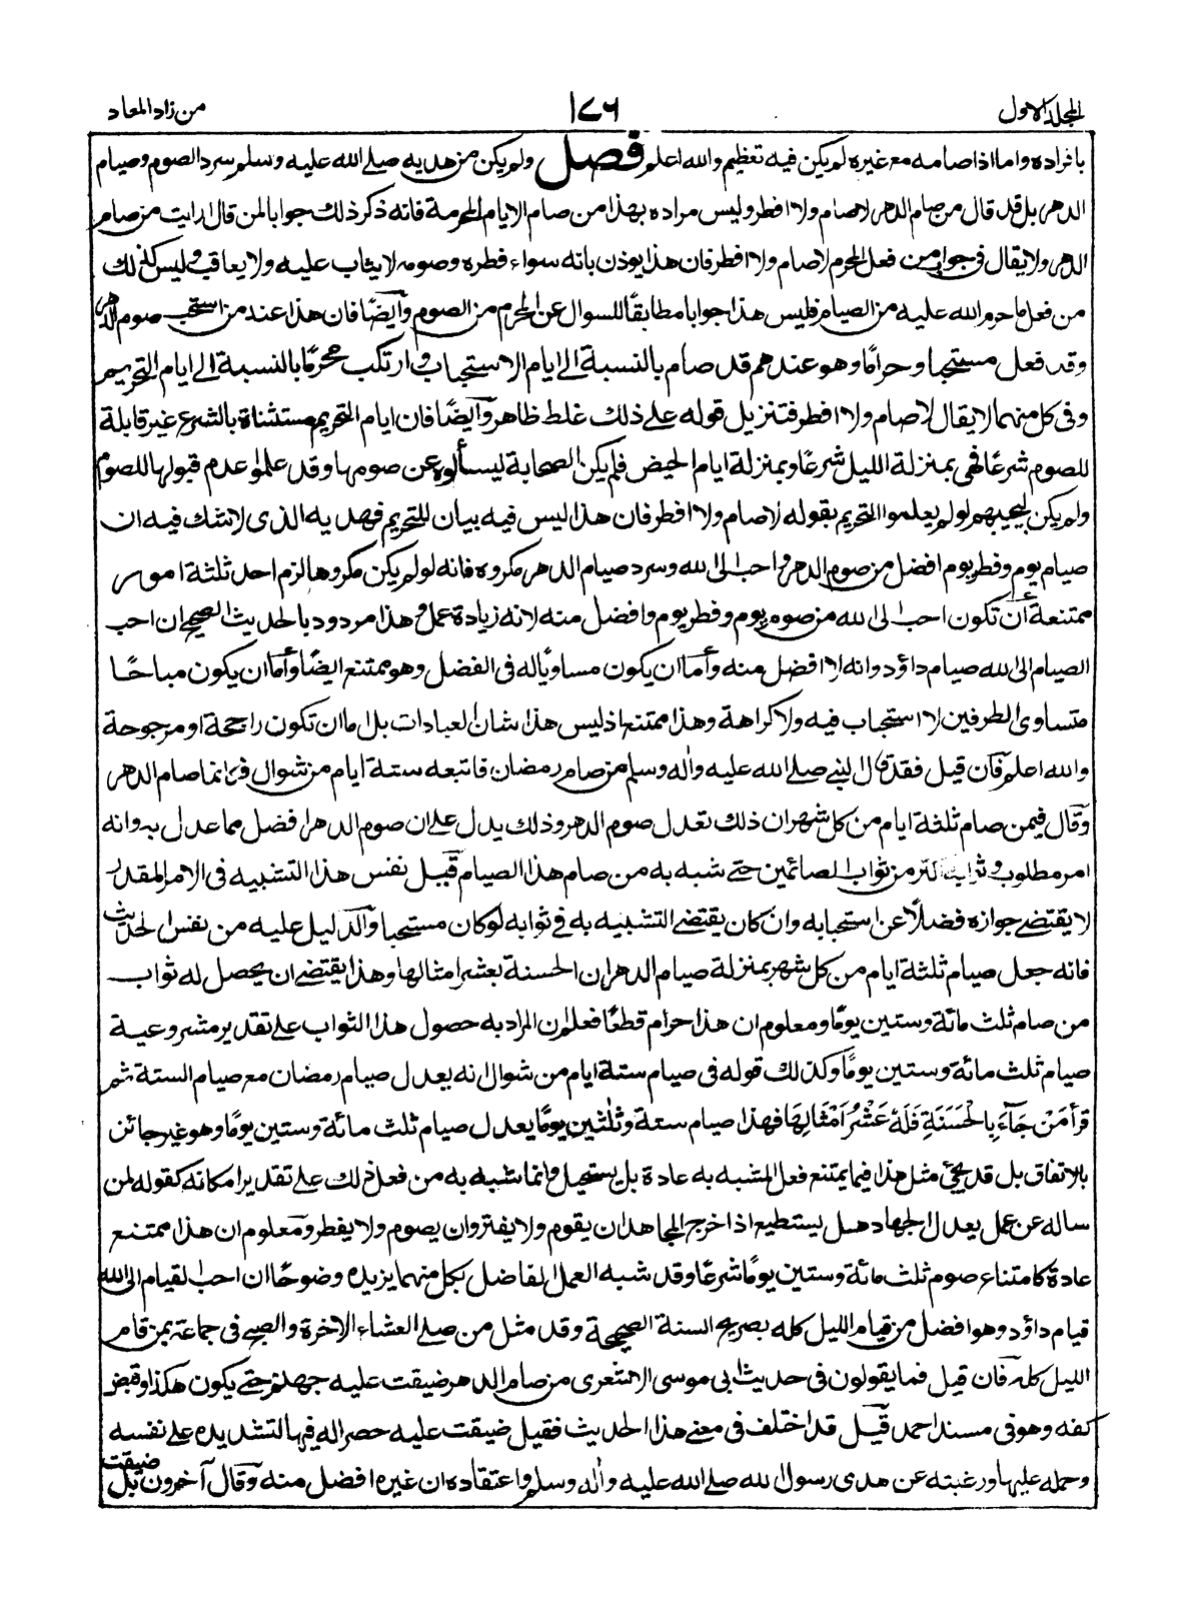 المجلد الاول
١٧٦
من زاد المعاد
بافراده واما اذا صامه مع غيره لم يكن فيه تعظيم والله اعلم فصل ولم يكن من هديه صلے الله عليه وسلم سرد الصوم وصيام
الدهر بل قد قال من صام الدهر لا صام ولا افطر وليس مراده بهذا من صام الايام المحرمة فانه ذكر ذلك جوابا لمن قال ارايت من صام
الدهر ولا يقال فى جواب من فعل المحرم لا صام ولا افطر فان هذا يوذن بانه سواء فطره وصومه لا يثاب عليه ولا يعاقب وليس كذلك
من فعل ما حرم الله عليه من الصيام فليس هذا جوابا مطابقًا للسوال عن المحرم من الصوم وأيضًا فان هذا عند من استحب صوم الدهر
وقد فعل مستحبا وحرامًا وهو عندهم قد صام بالنسبة الے ايام الاستحباب وارتكب محرمًا بالنسبة الے ايام التحريم
وفى كل منهما لا يقال لا صام ولا افطر فتنزيل قوله علے ذلك غلط ظاهر وأيضًا فان ايام التحريم مستثناة بالشرع غير قابلة
للصوم شرعًا فهى بمنزلة الليل شرعًا وبمنزلة ايام الحيض فلم يكن الصحابة ليسألوه عن صومها وقد علموا عدم قبولها للصوم
ولم يكن ليجيبهم لو لم يعلموا التحريم بقوله لا صام ولا افطر فان هذا ليس فيه بيان للتحريم فهديه الذى لا شك فيه ان
صيام يوم وفطر يوم افضل من صوم الدهر واحب الى الله وسرد صيام الدهر مكروه فانه لو لم يكن مكروها لزم احد ثلثة امور
ممتنعة أن تكون احب الى الله من صوم يوم وفطر يوم وافضل منه لانه زيادة عمل وهذا مردود بالحديث الصحيح ان احب
الصيام الى الله صيام داؤد وانه لا افضل منه وأما ان يكون مساويًا له فى الفضل وهو ممتنع ايضًا وأما ان يكون مباحًا
متساوى الطرفين لا استحباب فيه ولا كراهة وهذا ممتنع اذ ليس هذا شان العبادات بل اما ان تكون راجحة او مرجوحة
والله اعلم فآن قيل فقد قال النبے صلے الله عليه واٰله وسلم من صام رمضان فاتبعه ستة ايام من شوال فكانما صام الدهر
وقال فيمن صام ثلثة ايام من كل شهر ان ذلك تعدل صوم الدهر وذلك يدل علے ان صوم الدهر افضل مما عدل به وانه
امر مطلوب وثوابه اكثر من ثواب الصائمين حتے شبه به من صام هذا الصيام قيل نفس هذا التشبيه فى الامر المقدر
لا يقتضے جوازه فضلًا عن استحبابه وان كان يقتضے التشبيه به فى ثوابه لو كان مستحبا والدليل عليه من نفس الحديث
فانه جعل صيام ثلثة ايام من كل شهر بمنزلة صيام الدهر ان الحسنة بعشر امثالها وهذا يقتضے ان يحصل له ثواب
من صام ثلث مائة وستين يومًا ومعلوم ان هذا حرام قطعًا فعلم ان المراد به حصول هذا الثواب علے تقدير مشروعية
صيام ثلث مائة وستين يومًا وكذلك قوله فى صيام ستة ايام من شوال انه يعدل صيام رمضان مع صيام الستة ثم
قرأ مَنْ جَآءَ بِالْحَسَنَةِ فَلَهٗ عَشْرُ اَمْثَالِهَا فهذا صيام ستة وثلٰثين يومًا يعدل صيام ثلث مائة وستين يومًا وهو غير جائز
بالاتفاق بل قد يجئ مثل هذا فيما يمتنع فعل المشبه به عادة بل يستحيل وانما شبه به من فعل ذلك علے تقدير امكانه كقوله لمن
ساله عن عمل يعدل الجهاد هل يستطيع اذا خرج المجاهد ان يقوم ولا يفتر وان يصوم ولا يفطر ومعلوم ان هذا ممتنع
عادة كامتناع صوم ثلث مائة وستين يومًا شرعًا وقد شبه العمل المفاضل بكل منهما يزيده وضوحًا ان احب القيام الى الله
قيام داؤد وهو افضل من قيام الليل كله بصريح السنة الصحيحة وقد مثل من صلے العشاء الاخرة والصبح فى جماعة بمن قام
الليل كله فآن قيل فما يقولون فى حديث ابى موسى الاشعرى من صام الدهر ضيقت عليه جهنم حتے يكون هكذا وقبض
كفه وهو فى مسند احمد قيل قد اختلف فى معنے هذا الحديث فقيل ضيقت عليه حصرا له فيها لتشديده علے نفسه
وحمله عليها ورغبته عن هدى رسول الله صلے الله عليه واٰله وسلم واعتقاده ان غيره افضل منه وقال آخرون بل ضيقت